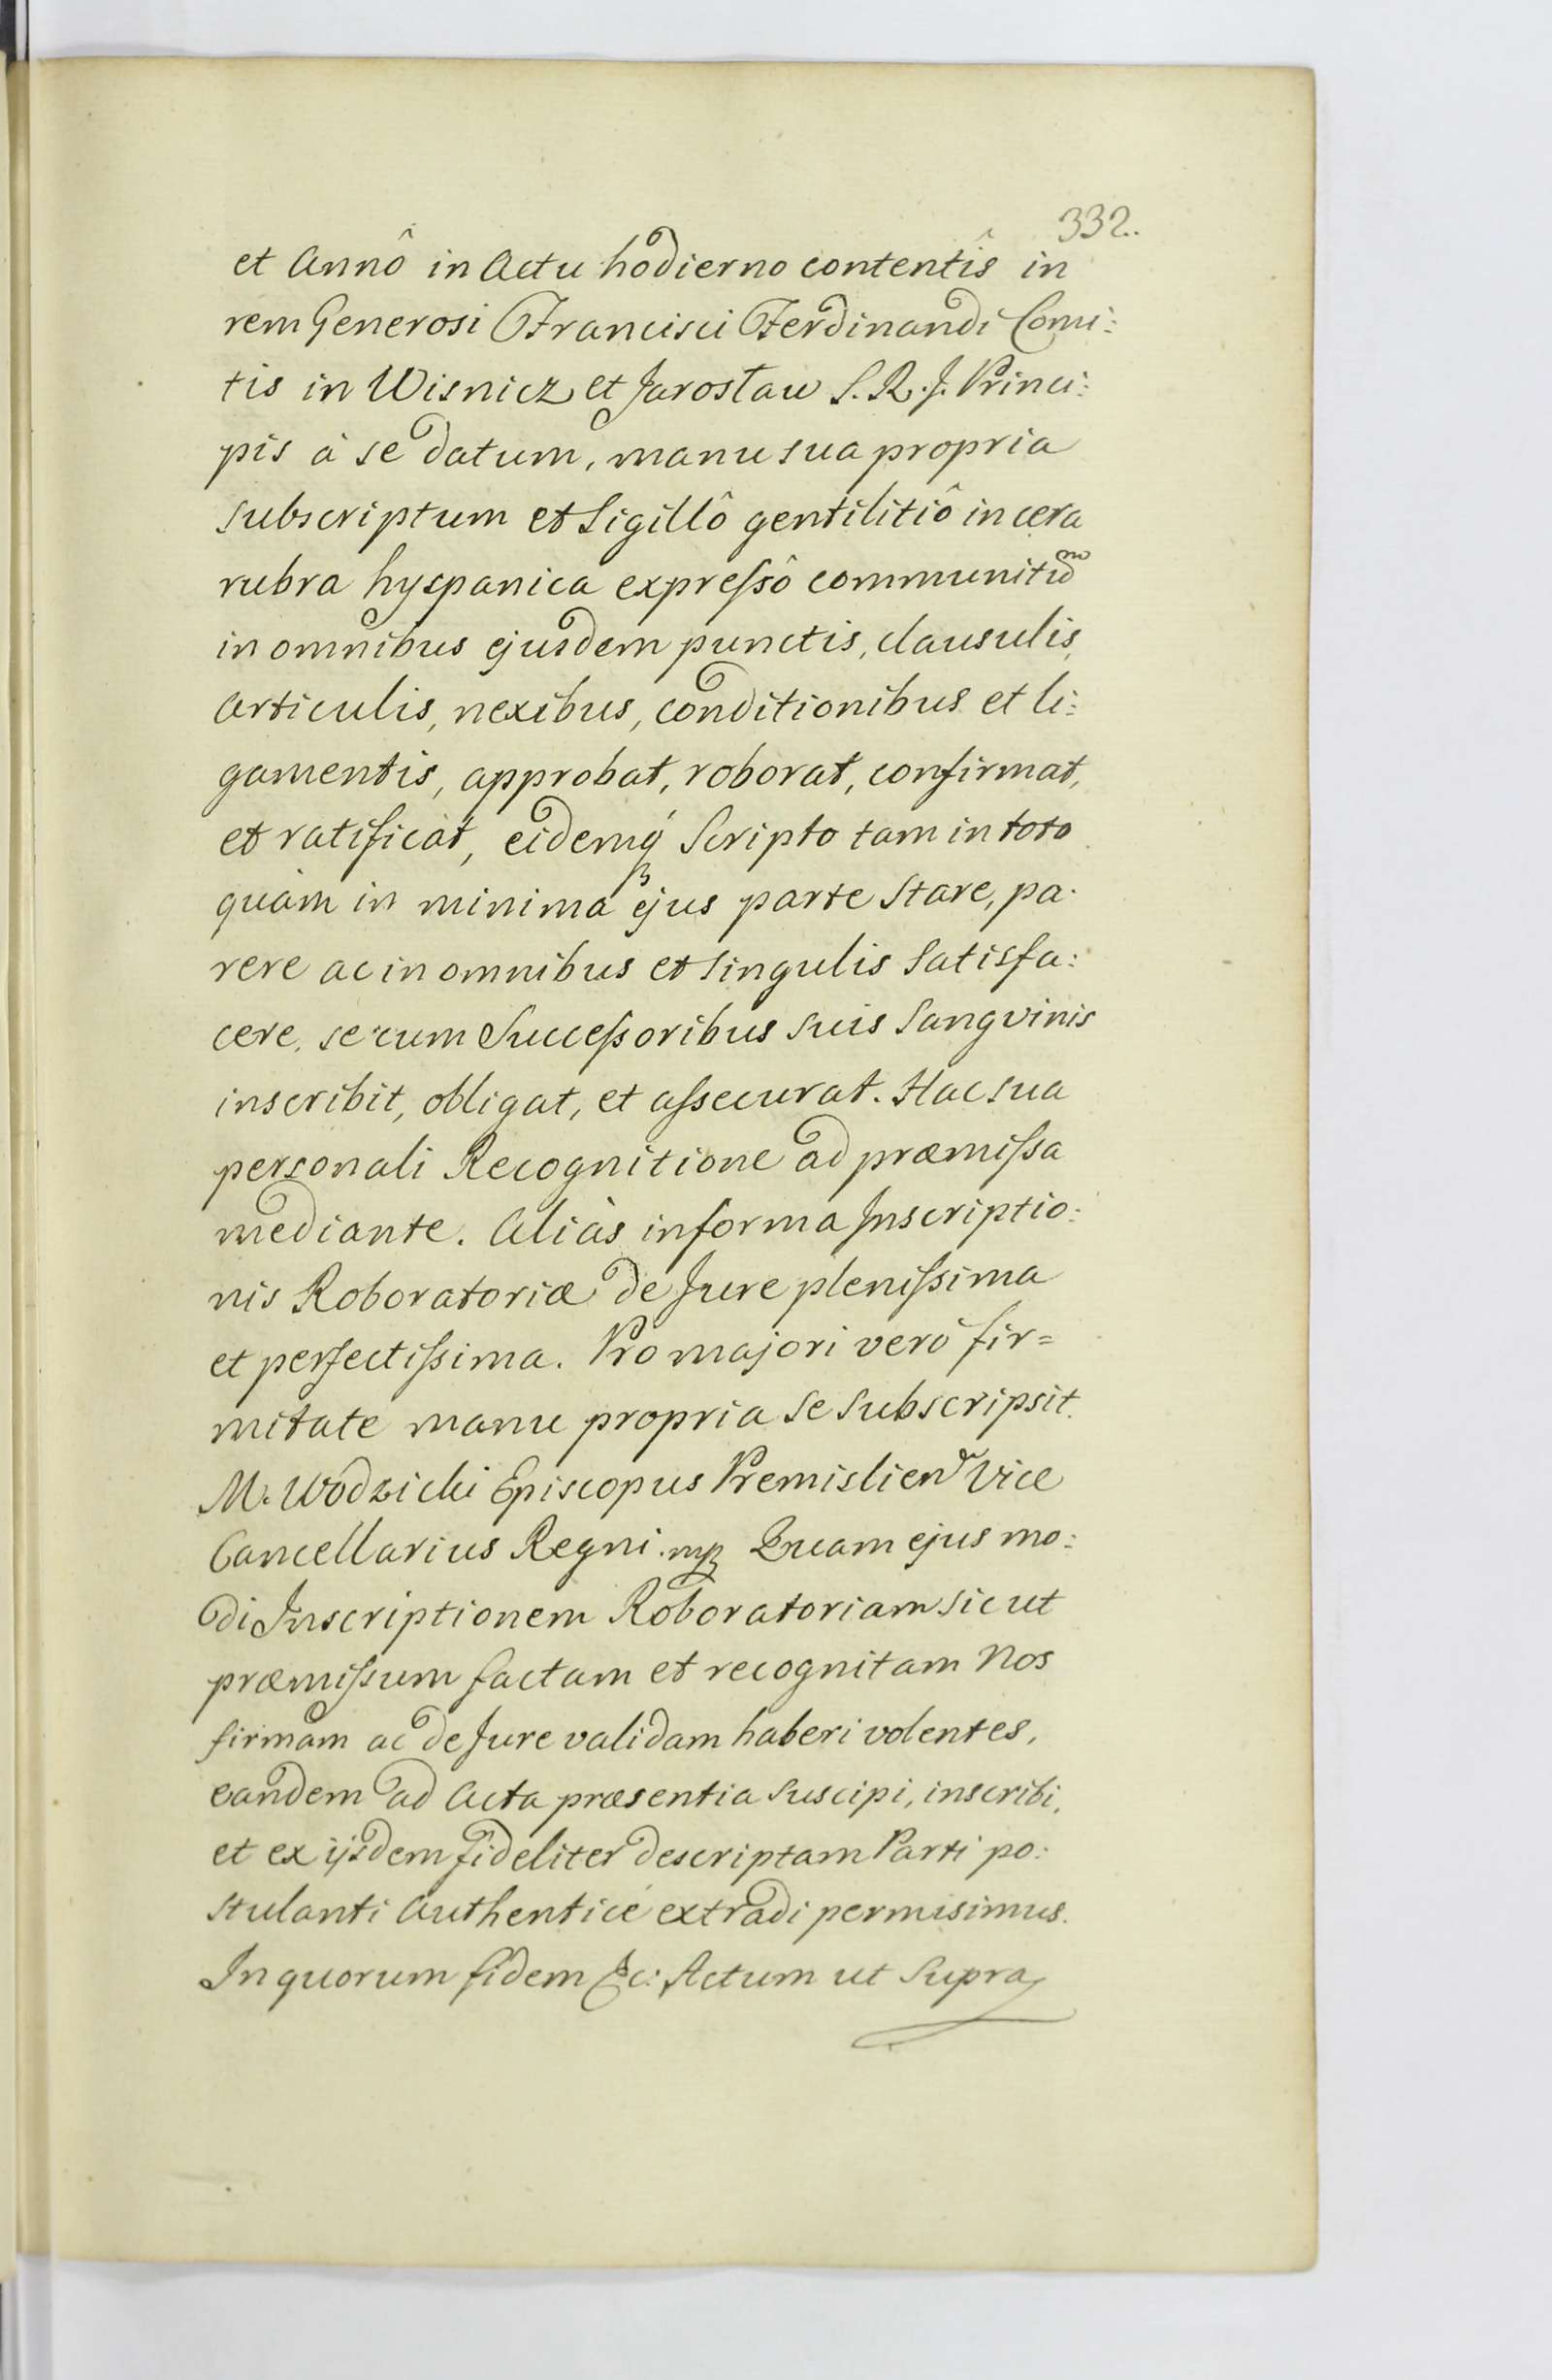 332.
et Annô in Actu hodierno contentîs in
rem Generosi Francisci Ferdinandi Comi:
tis in Wisnicz et Jarosław S. R. J. Princi:
pis à se datum, manu sua propria
subscriptum et Sigillô gentilitiô in cera
rubra hyspanica expreſsô communitum
in omnibus ejusdem punctis, clausulis,
articulis, nexibus, conditionibus et li:
gamentis, approbat, roborat, confirmat,
et ratificat, eidemq́ Scripto tam in toto
quàm in minima ejus parte stare, pa:
rere ac in omnibus et singulis Satisfa:
cere, se cum Succeſsoribus suis Sangvinis
inscribit, obligat, et aſsecurat. Hac sua
personali Recognitione ad præmiſsa
mediante. Aliàs in forma Inscriptio:
nis Roboratoriæ de Jure pleniſsima
et perfectiſsima. Pro majori verò fir=
mitate manu propria se subscripsit.
M. Wodzicki Episcopus Premislien Vice
Cancellarius Regni. mp Quam ejus mo:
di Inscriptionem Roboratoriam sicut
præmiſsum factam et recognitam Nos
firmam ac de Jure validam haberi volentes,
eandem ad Acta præsentia suscipi, inscribi,
et ex ijsdem fideliter descriptam Parti po:
stulanti Authenticè extradi permisimus.
In quorum fidem &c: Actum ut Supra